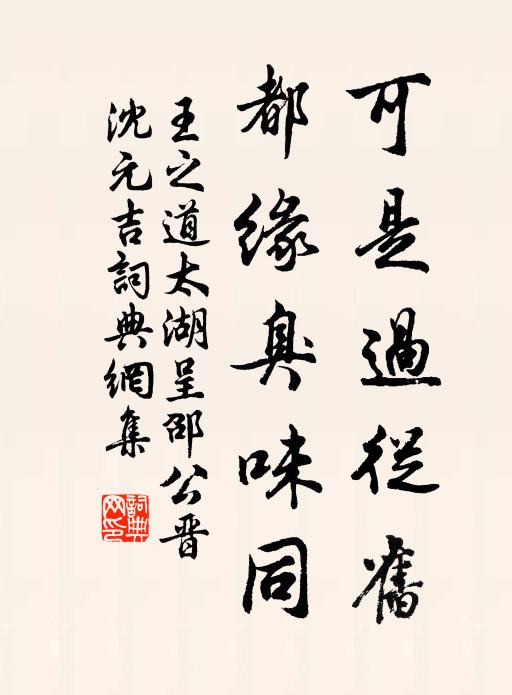 可是過從舊
都緣臭味同
王之道太湖呈邵公晋
沈元吉詞典網集
詞典網印